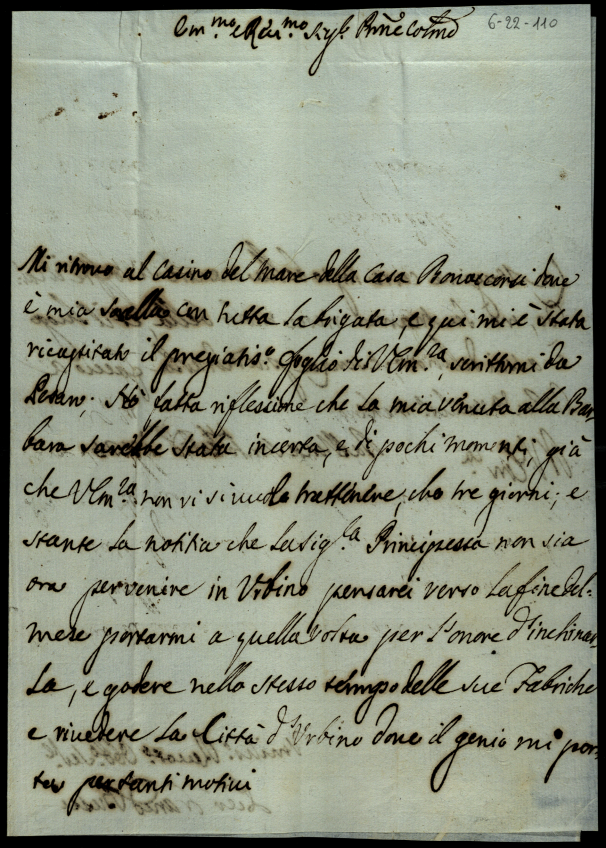 6-22-110
Em.mo e Rev.mo Sig.r Prne Colmo
Mi ritrovo al Casino del Mare della Casa Bonaccorsi dove
è mia sorella con tutta la brigata, e qui mi è stata
ricapitato il pregiatis.o foglio di V.Em.za, scrittomi da
Pesaro; Hò fatta riflessione che la mia venuta alla Bar=
bara sarebbe stata incerta, e di pochi momenti, già
che V.Em.za non vi si vuole trattenere, che tre giorni; e
stante la notitia che la Sig.ra Principessa non sia
ora per venire in Urbino pensarei verso la fine del=
mese portarmi a quella volta per l'onore d'inchinar=
la, e godere nello stesso tempo delle sue Fabriche
e rivedere la Città d'Urbino dove il genio mi por=
ta per tanti motivi